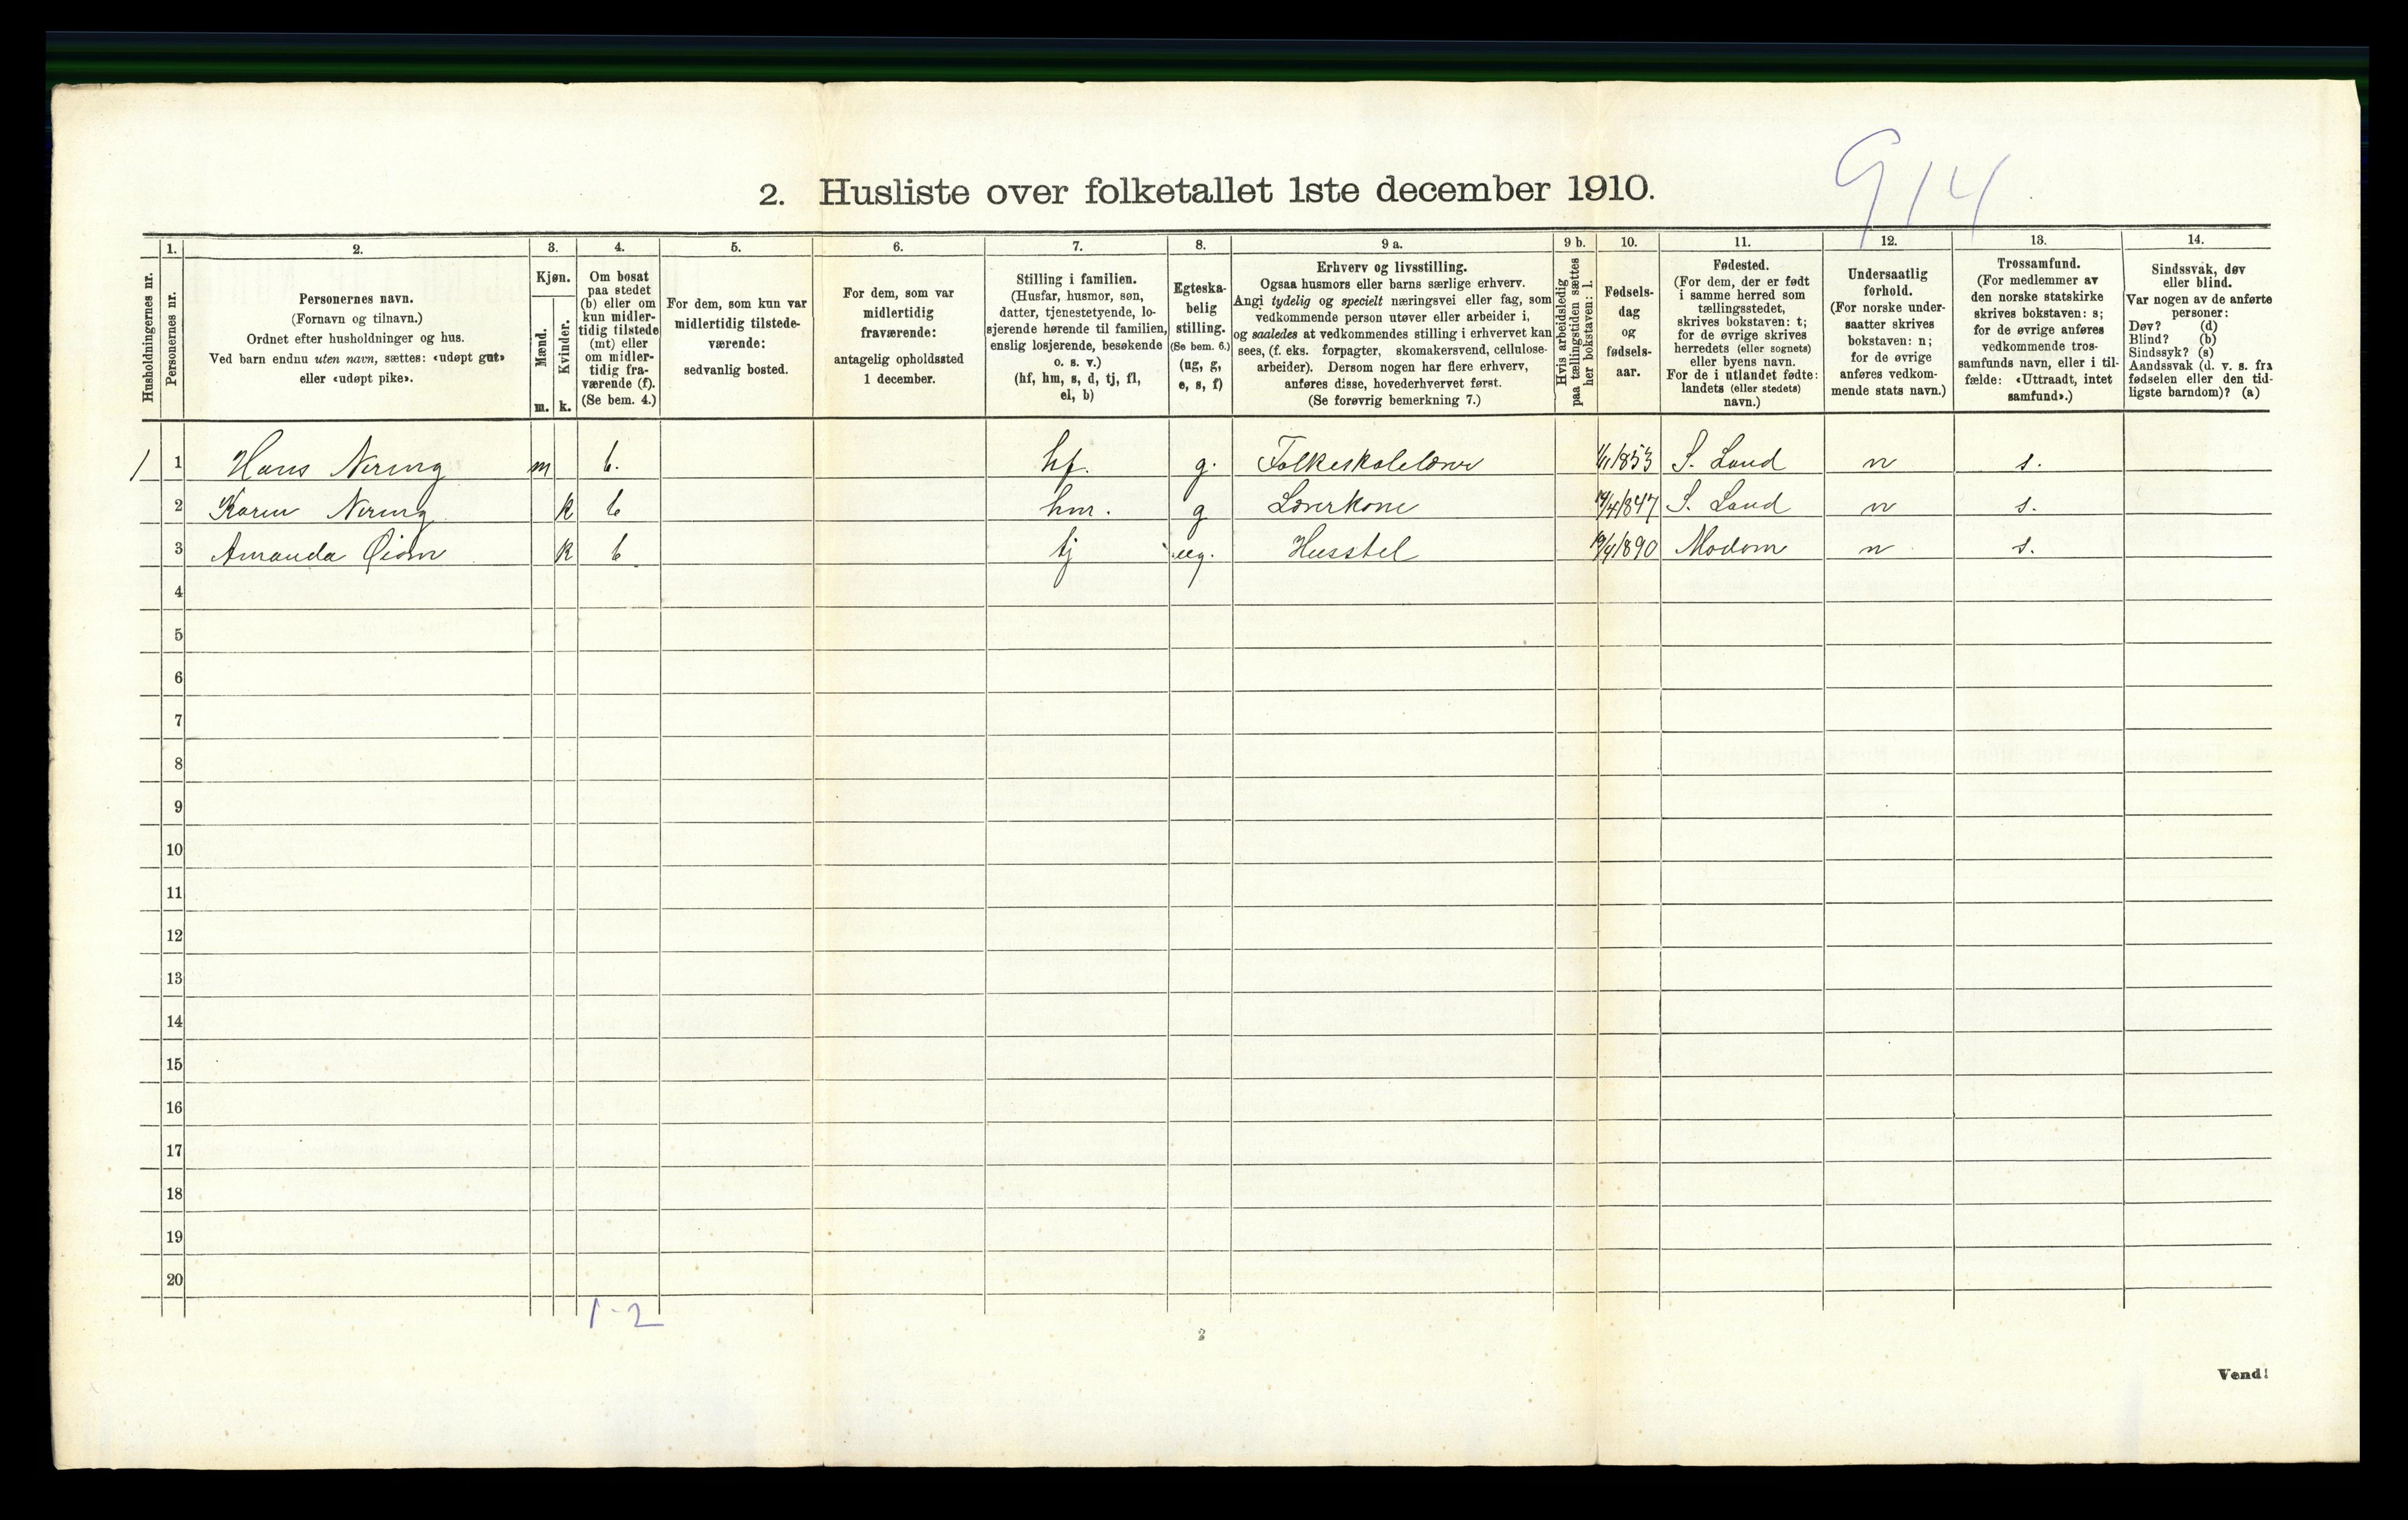 914
2. Husliste over folketallet 1ste december 1910.
Husholdningernes nr.
1.
Personernes nr.
2.
Personernes navn.
(Fornavn og tilnavn.)
Ordnet efter husholdninger og hus.
Ved barn endnu uten navn, sættes: «udøpt gut»
eller «udøpt pike».
3.
Kjøn.
Mænd.
m.
Kvinder.
k.
4.
Om bosat
paa stedet
(b) eller om
kun midler-
tidig tilstede
(mt) eller
om midler-
tidig fra-
værende (f).
(Se bem. 4.)
5.
For dem, som kun var
midlertidig tilstede-
værende:
sedvanlig bosted.
6.
For dem, som var
midlertidig
fraværende:
antagelig opholdssted
1 december.
7.
Stilling i familien.
(Husfar, husmor, søn,
datter, tjenestetyende, lo-
sjerende hørende til familien,
enslig losjerende, besøkende
o. s. v.)
(hf, hm, s, d, tj, fl,
el, b)
8.
Egteska-
belig
stilling.
(Se bem. 6.)
(ug, g,
e, s, f)
9 a.
Erhverv og livsstilling.
Ogsaa husmors eller barns særlige erhverv.
Angi tydelig og specielt næringsvei eller fag, som
vedkommende person utøver eller arbeider i,
og saaledes at vedkommendes stilling i erhvervet kan
sees, (f. eks. forpagter, skomakersvend, cellulose-
arbeider). Dersom nogen har flere erhverv,
anføres disse, hovederhvervet først.
(Se forøvrig bemerkning 7.)
9 b.
Hvis arbeidsledig
paa tællingstiden sættes
her bokstaven: l.
10.
Fødsels-
dag
og
fødsels-
aar.
11.
Fødested.
(For dem, der er født
i samme herred som
tællingsstedet,
skrives bokstaven: t;
for de øvrige skrives
herredets (eller sognets)
eller byens navn.
For de i utlandet fødte:
landets (eller stedets)
navn.)
12.
Undersaatlig
forhold.
(For norske under-
saatter skrives
bokstaven: n;
for de øvrige
anføres vedkom-
mende stats navn.)
13.
Trossamfund.
(For medlemmer av
den norske statskirke
skrives bokstaven: s;
for de øvrige anføres
vedkommende tros-
samfunds navn, eller i til-
fælde: «Uttraadt, intet
samfund».)
14.
Sindssvak, døv
eller blind.
Var nogen av de anførte
personer:
Døv? (d)
Blind? (b)
Sindssyk? (s)
Aandssvak (d. v. s. fra
fødselen eller den tid-
ligste barndom)? (a)
1 1 Hans Nering m b. hf. g. Folkeskolelærer 1/11 1853 S. Land n s.
2 Karen Nering k b hm. g Lærerkone 14/4 1847 S. Land n s.
3 Amanda Øiom k b tj ug. Husstel 19/4 1890 Modum n s.
4
5
6
7
8
9
10
11
12
13
14
15
16
17
18
19
20
1-2
2
Vend!